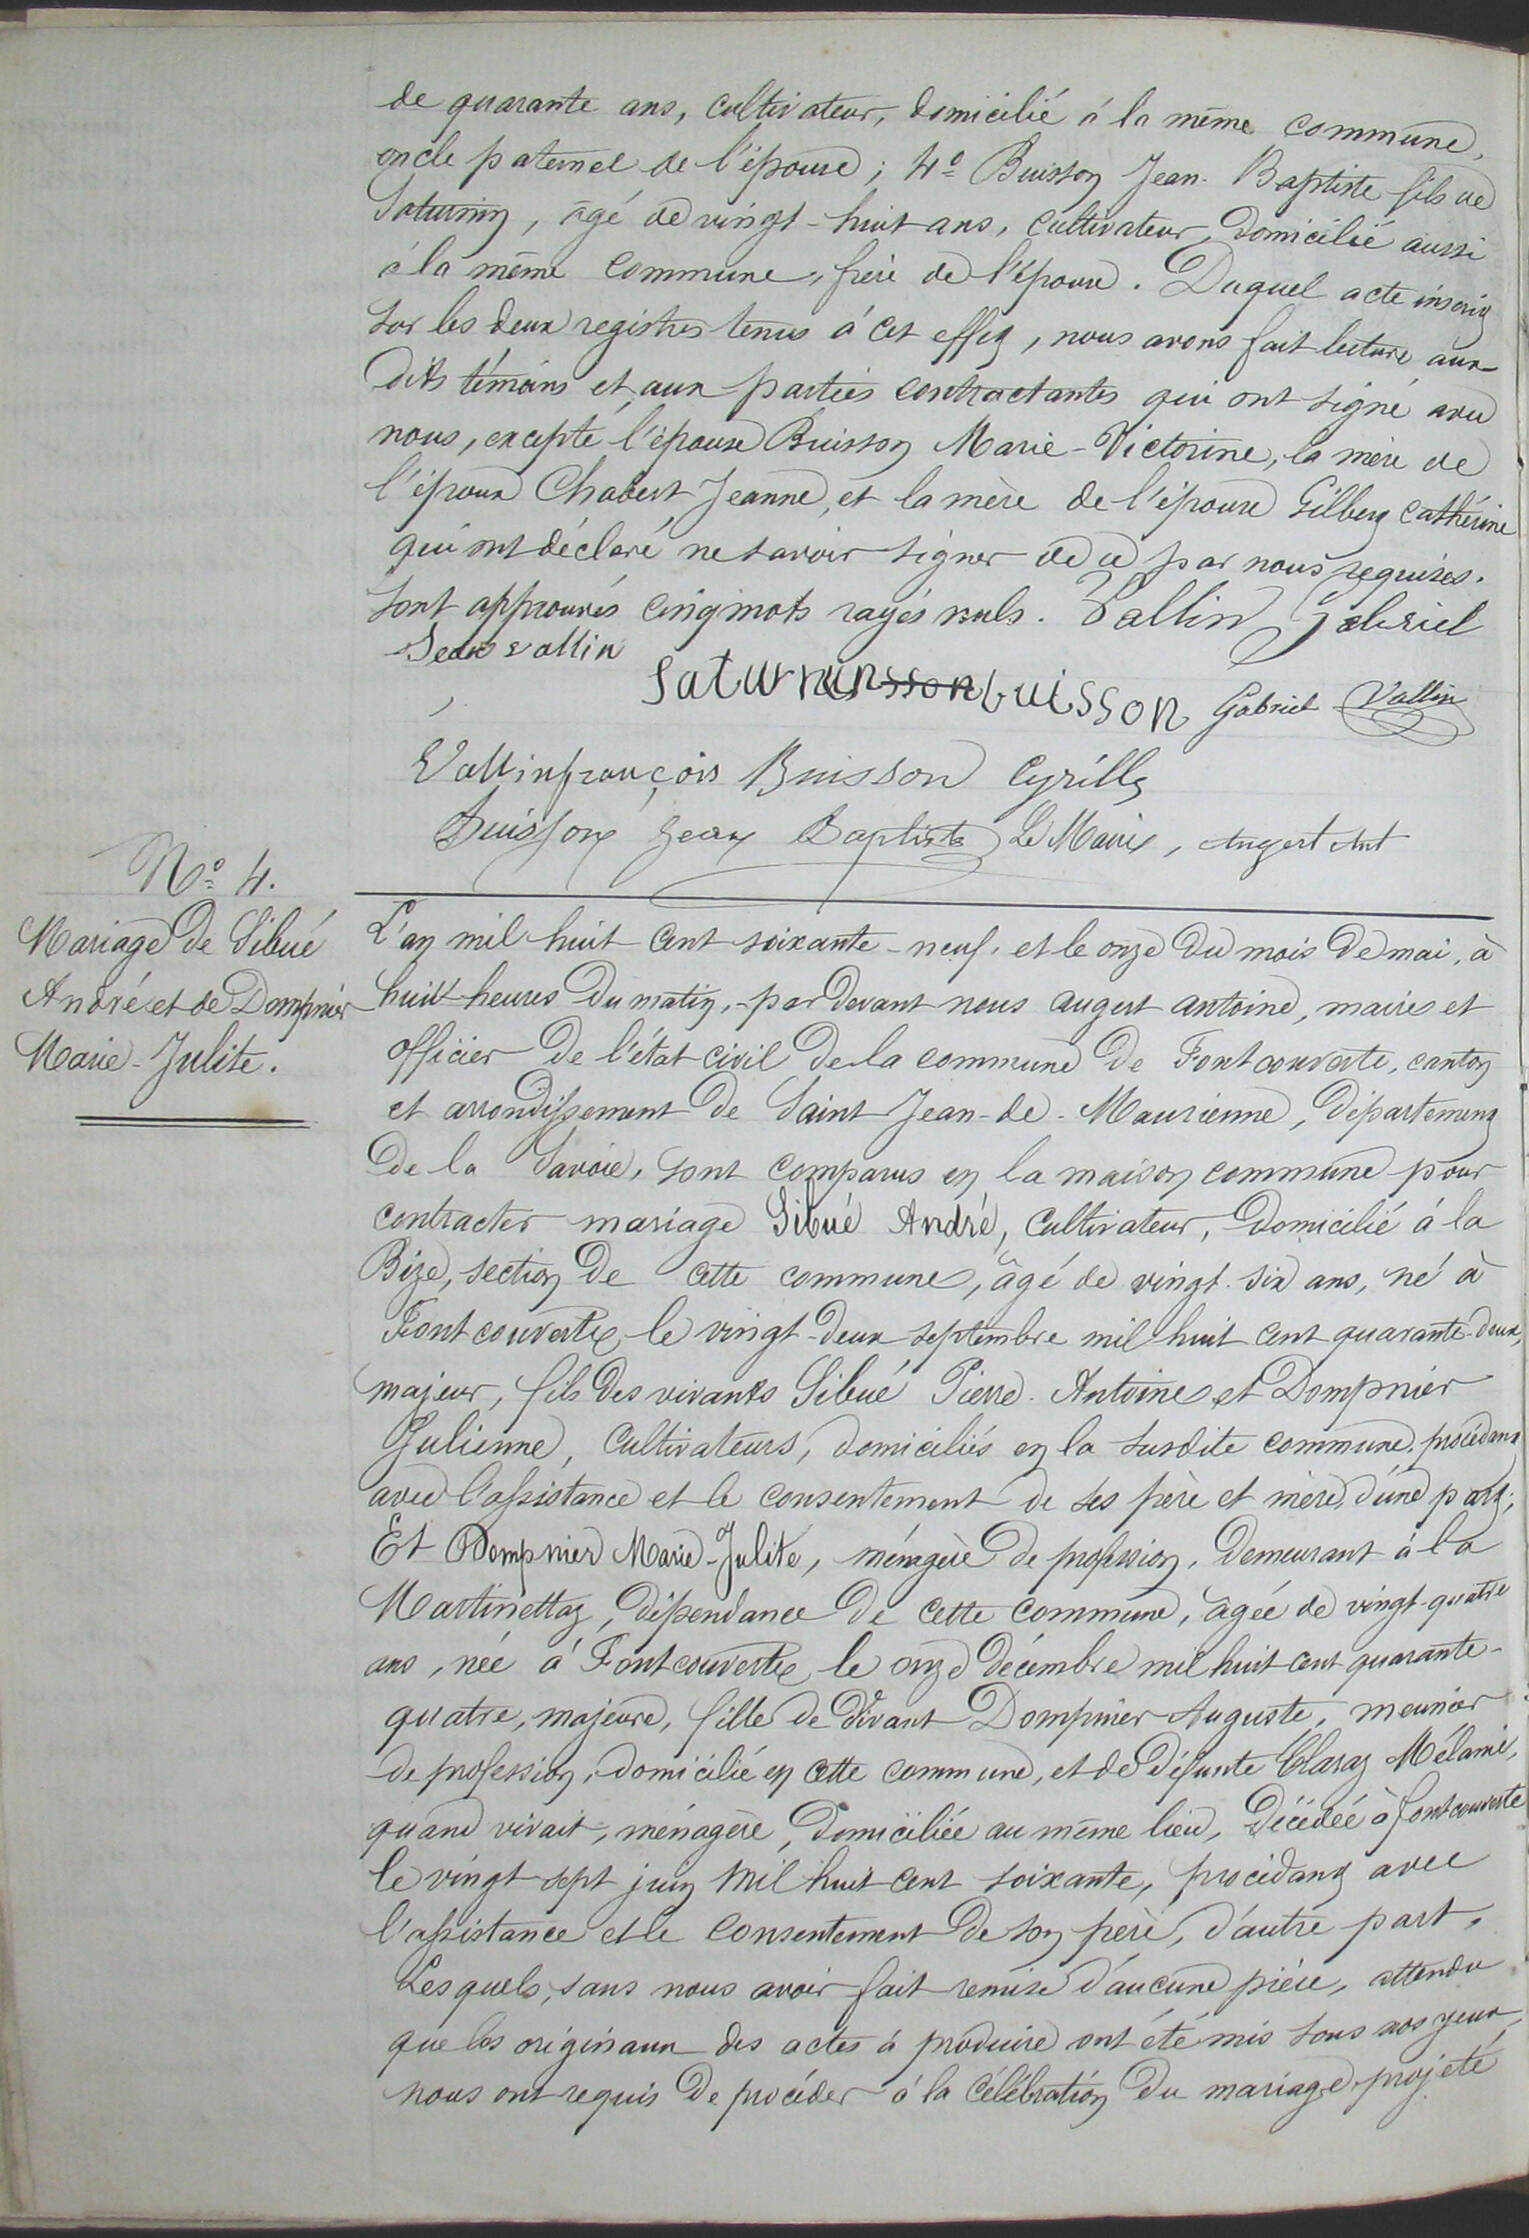 de quarante ans, cultivateur, domicilié à la même commune,
oncle paternel de l'épouse; 4º Buisson Jean-Baptiste fils de
Saturnin, âgé de vingt-huit ans, cultivateur, domicilié aussi
à la même commune, frère de l'épouse. Duquel acte inscrit
sur les deux registres tenus à cet effet, nous avons fait lecture aux
dits témoins et aux parties contractantes qui ont signé avec
nous, excepté l'épouse Buisson Marie-Victorine, la mère de
l'époux Chabert Jeanne, et la mère de l'épouse Gilbert Cathérine
qui ont déclaré ne savoir signer de ce par nous requises.
Sont approuvés cinq mots rayés nuls. Vallin Gabriel
Jean vallin
Saturnin buisson Gabriel Vallin
Vallin françois Buisson Cyrille
Buisson Jean Baptiste Le Maire, Augert Ant
Nº 4.
Mariage de Sibué
André et de Dompnier
Marie-Julite.
L'an mil huit cent soixante-neuf, et le onze du mois de mai, à
huit heures du matin, par devant nous augert antoine, maire et
officier de l'état civil de la commune de Fontcouverte, canton
et arrondissement de Saint Jean-de-Maurienne, département
de la Savoie, sont comparus en la maison commune pour
contracter mariage Sibué André, cultivateur, domicilié à la
Bize, section de cette commune, âgé de vingt-six ans, né à
Fontcouverte le vingt-deux septembre mil huit cent quarante-deux,
majeur, fils des vivants Sibué Pierre-Antoine et Dompnier
Julienne, cultivateurs, domiciliés en la susdite commune, procédant
avec l'assistance et le consentement de ses père et mère, d'une part;
Et Dompnier Marie-Julite, ménagère de profession, demeurant à la
Martinettaz, dépendance de cette commune, âgée de vingt-quatre
ans, née à Fontcouverte le onze décembre mil huit cent quarante-
quatre, majeure, fille de vivant Dompnier Auguste, meunier
de profession, domicilié en cette commune, et de défunte Claraz Mélanie,
quand vivait, ménagère, domiciliée au même lieu, décédée à fontcouverte
le vingt-sept juin mil huit cent soixante, procédant avec
l'assistance et le consentement de son père, d'autre part.
Lesquels, sans nous avoir fait remise d'aucune pièce, attendu
que les originaux des actes à produire ont été mis sous nos yeux,
nous ont requis de procéder à la célébration du mariage projeté